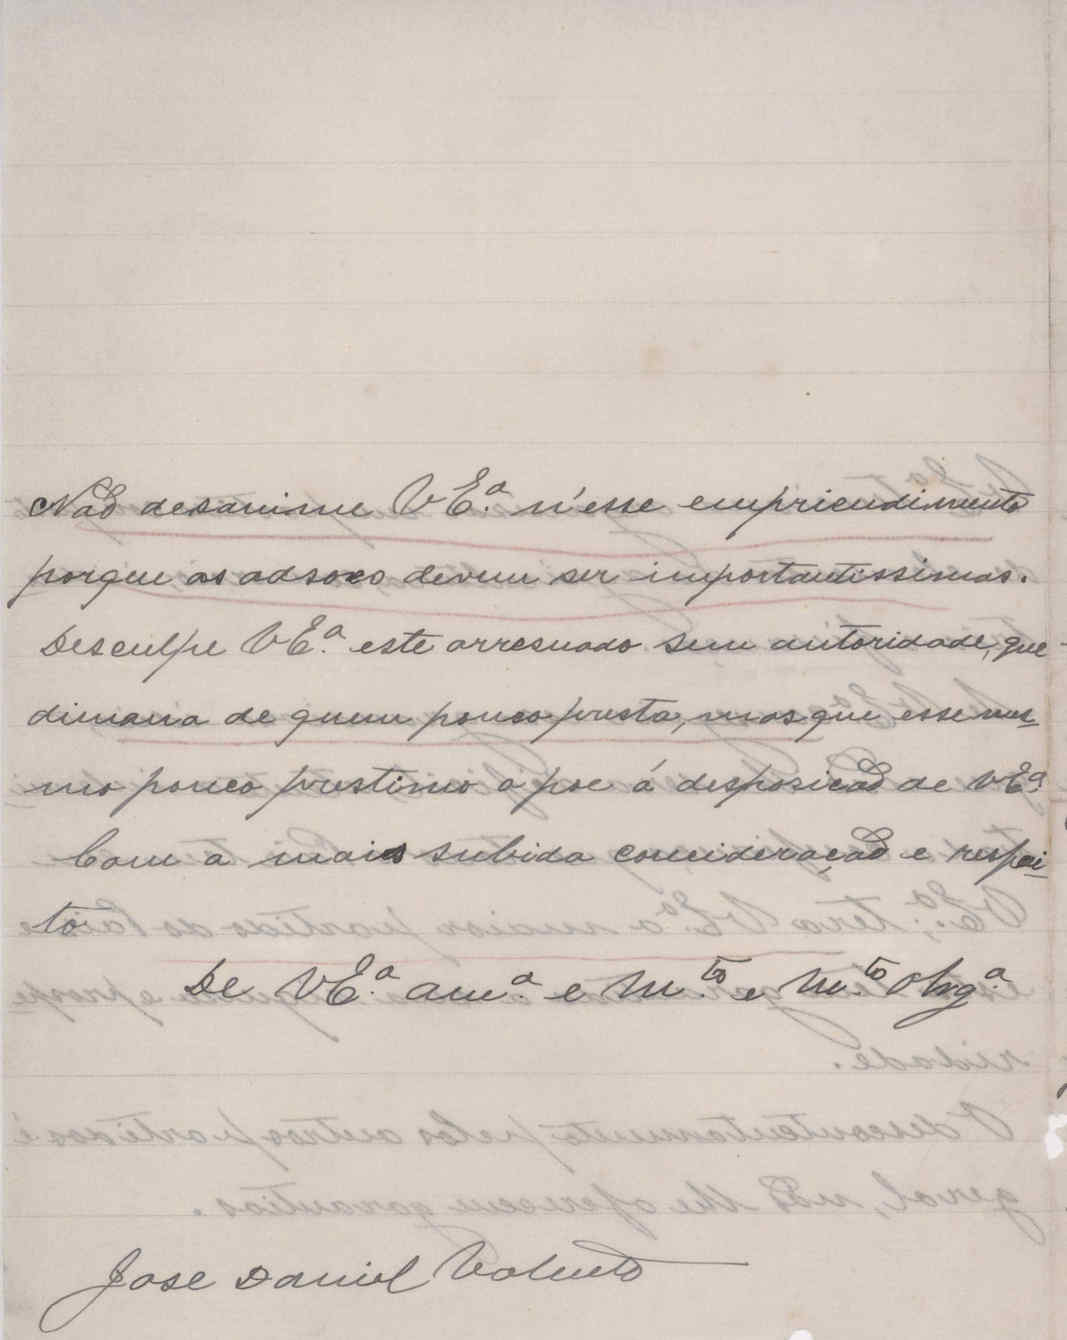 Não desanime V Ex.ª n'esse empriendimento
porque as adsoxo devem ser importantissimas.
Desculpe V E.ª este arresuado sem autoridade, que
dimana de quem pouco presta, mas que esse mes-
mo pouco prestimo o poe á desposicão de V E.ª
Com a mais subida concideração e respei-
to
De V E.ª am.º e M.to e M.to Obrg.º
Jose Daniel